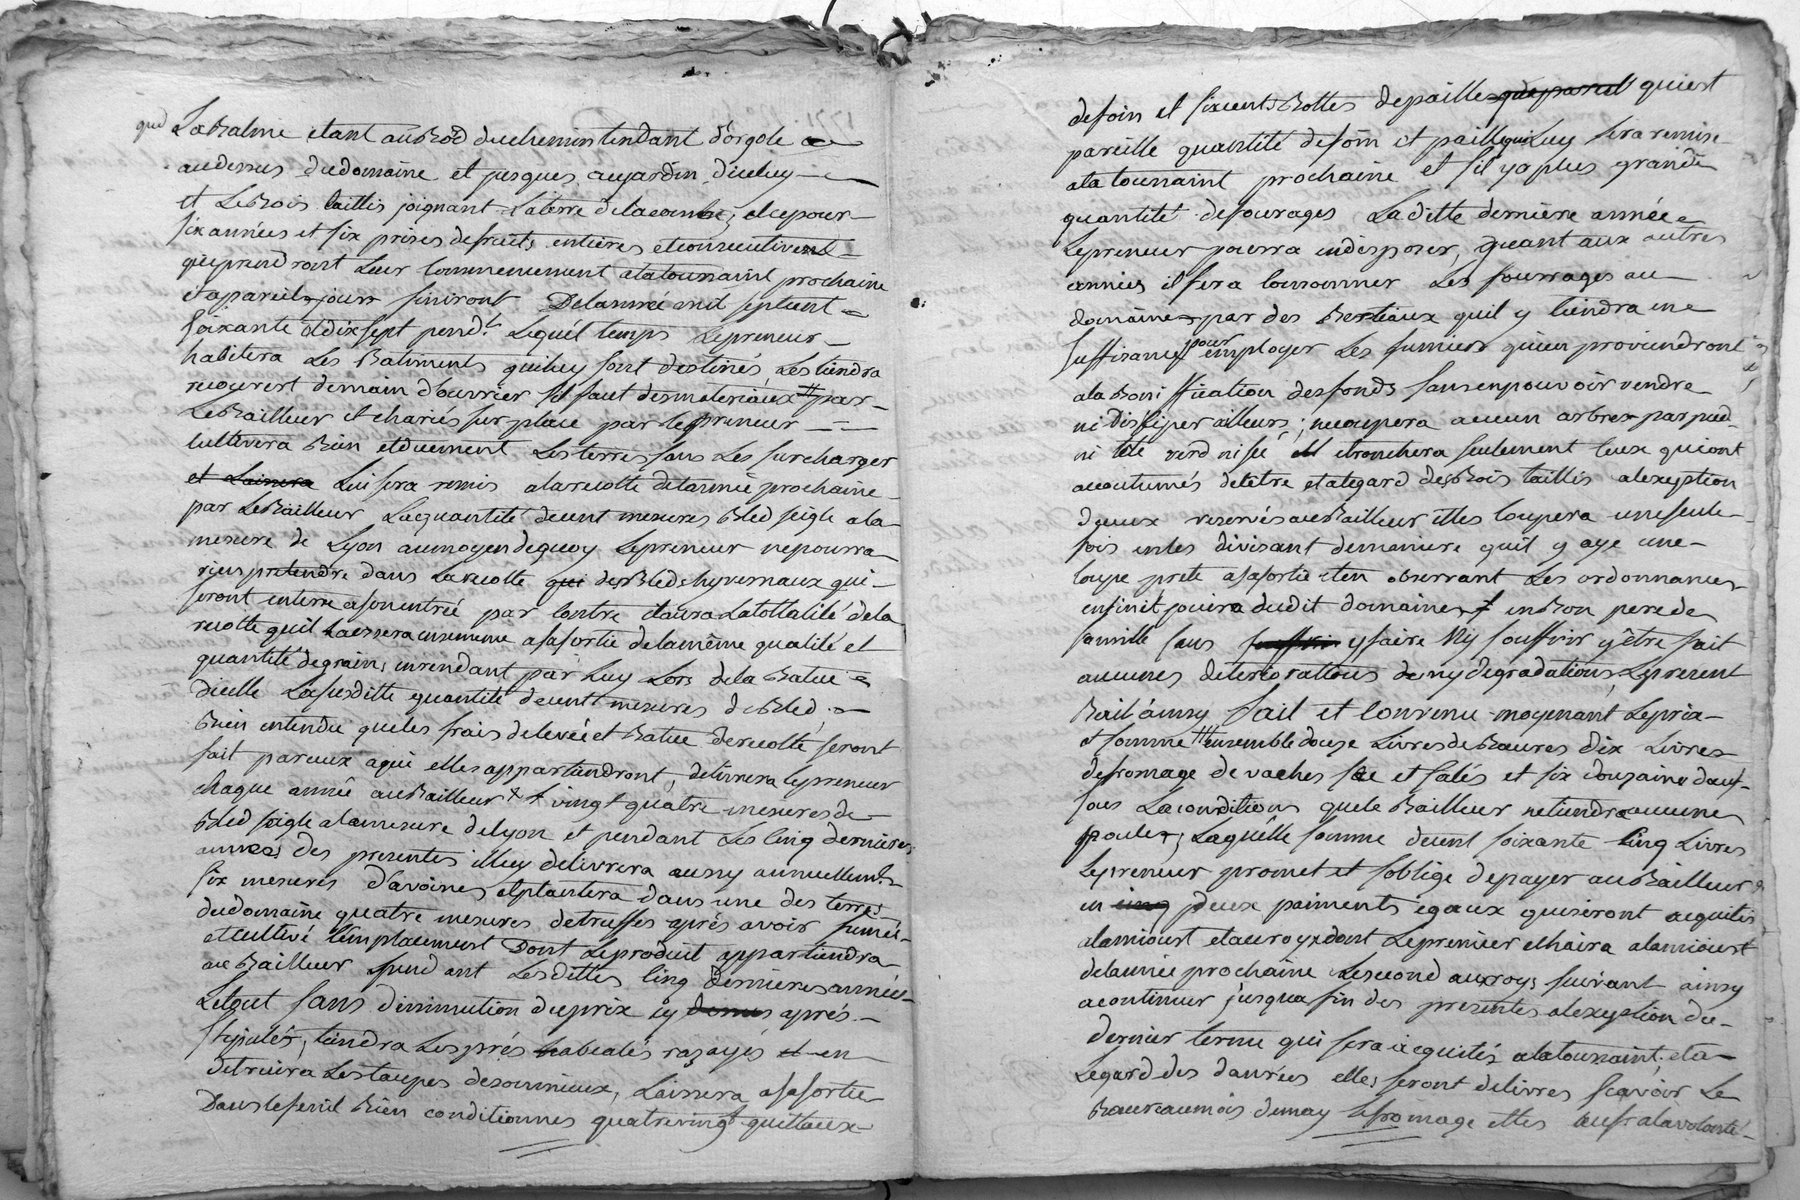 que LaBalme etant auBord duchemin tendant d'orgole a
audessus dudomaine et jusques aujardin d'icluy
et LeBois taillis joignant Laterre delacombe; etcepour
six années et six prises defruits entieres etconsecutives
quiprendront Leur Commencement alatoussaint prochaine
etapareil jour finiront Delannée mil septcent
soixante etdixsept pend.t Lequel temps Lepreneur
habitera Les Batiments quiluy sont destinés, Les tiendra
recouvert demain d'ouvrier sil faut desmateriaux # par
LeBailleur et chariés sur place par lepreneur
Cultivera Bien etduement Lesterres sans Les surcharger
et Laissera Luisera remis alarecolte delannée prochaine
par LeBailleur Laquantité decent mesures Bled seigle ala
mesure de Lyon aumoyen dequoy Lepreneur nepourra
rien pretendre dans Larecolte qui desBleds hyvernaux qui
seront enterre asonentrée par Contre ilaura Latottalité dela
recolte quil Laissera ensemence asasortie delamême qualité et
quantité degrains, enrendant par Luy Lors dela Batue
d'icelle Lasusditte quantité decent mesures deBled,
Bien entendu queles frais delevée et Batue derecolte seront
fait parceux aqui elles appartiendront, delivrera lepreneur
chaque année auBailleur vingt quatre mesures de
Bled seigle alamesure delyon et pendant Les Cinq dernieres
années des presentes illuy delivrera aussy annuellem.t
six mesures d'avoines etplantera dans une des terres
dudomaine quatre mesures detruffes aprés avoir fumé
etcultivé l'emplacement Dont Leproduit appartiendra
au Bailleur pendant Lesdittes Cinq dernieres années
Letout sans diminution duprix cy aprés
stipulés, tiendra Les prés en
detruira Lestaupes Laissera asasortie
Danslefenil Bien conditionnes quatrevingt quittaux
defoin et sixcents Bottes depaille quepareil quiest
pareille quantité defoin et paille qui Luy sera remise
ala toussaint prochaine et s'il ya plus grande
quantité defourages Laditte derniere année
Lepreneur pourra endisposer, quant aux autres
années il fera Consommer Les fourrages au
domaine par des Bestiaux quil y tiendra en
suffisance pour employer Les fumiers quien proviendront
ala Bonification desfonds sansenpouvoir vendre
ni dissiper ailleurs; necoupera aucun arbres par pied
ni tete verd nisec etronchera seulement Ceux quiont
accoutumés deletre etalegard des Bois taillis alexeption
deceux reservés auBailleur illes Coupera uneseule
fois enles divisant demaniere quil y aye une
Coupe prete asasortie eten observant Les ordonnances
enfin il jouira dudit domaine enBon pere de
famille sans y faire Ny souffrir y être fait
aucunes deteriorations ny degradations, Lepresent
Bail ainsy fait et Convenu moyenant Leprix
et somme # ensemble douze Livres deBeaures dix Livres
defromage de vaches sec et salés et six douzaine dœuf
sous Lacondition quele Bailleur netiendra aucune
poule, Laquelle somme decent soixante Cinq Livres
Lepreneur promet et soblige depayer auBailleur
en cinq deux paiments égaux quiseront acquités
alamioust etauroyx dont Lepremier echaira alamioust
delannée prochaine Lesecond auxroys suivant ainsy
acontinuer jusqua fin des presentes alexeption du
dernier terme qui sera acquités alatoussaint; eta
Legard des danrées elles seront delivres scavoir Le
Beaureaumois demay lefromage et les œufs alavolonté